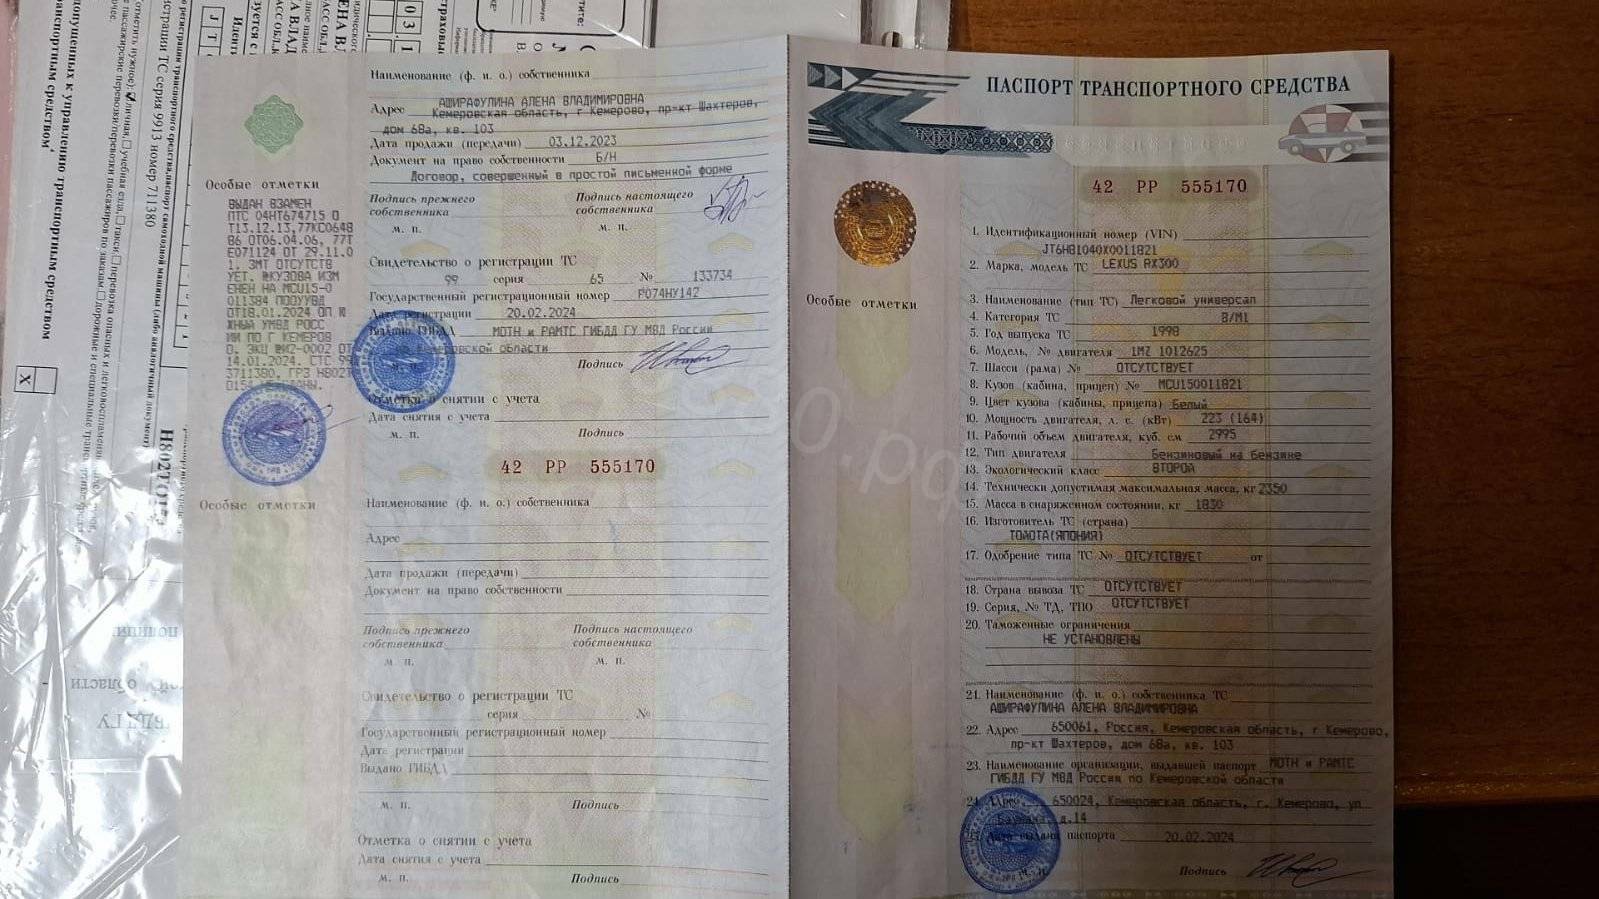 Наименование (ф. и. о.) собственника
АШИРАФУЛИНА АЛЕНА ВЛАДИМИРОВНА
Адрес Кемеровская область, г Кемерово, пр-кт Шахтеров,
дом 68а, кв. 103
Дата продажи (передачи) 03.12.2023
Документ на право собственности Б/Н
Договор, совершенный в простой письменной форме
Подпись прежнего собственника
Подпись настоящего собственника
м. п.
м. п.
Свидетельство о регистрации ТС
99 серия 65 № 133734
Государственный регистрационный номер Р074НУ142
Дата регистрации 20.02.2024
Выдано ГИБДД МОТН и РАМТС ГИБДД ГУ МВД России
по Кемеровской области
м. п.
Подпись
Отметка о снятии с учета
Дата снятия с учета
м. п.
Подпись
Особые отметки
ВЫДАН ВЗАМЕН
ПТС 04НТ674715 О
Т13.12.13,77КС0648
86 ОТ06.04.06, 77Т
Е071124 ОТ 29.11.0
1. ЭМТ ОТСУТСТВ
УЕТ. №КУЗОВА ИЗМ
ЕНЕН НА MCU15-0
011384 ПООУУВД
ОТ18.01.2024 ОП Ю
ЖНЫЙ УМВД РОСС
ИИ ПО Г КЕМЕРОВ
О. ЭКЦ №И2-0002 ОТ
14.01.2024, СТС 99
3711380, ГРЗ Н802Т
О154
42 РР 555170
Особые отметки
Наименование (ф. и. о.) собственника
Адрес
Дата продажи (передачи)
Документ на право собственности
Подпись прежнего собственника
Подпись настоящего собственника
м. п.
м. п.
Свидетельство о регистрации ТС
серия №
Государственный регистрационный номер
Дата регистрации
Выдано ГИБДД
м. п.
Подпись
Отметка о снятии с учета
Дата снятия с учета
м. п.
Подпись
ПАСПОРТ ТРАНСПОРТНОГО СРЕДСТВА
42 РР 555170
Особые отметки
1. Идентификационный номер (VIN)
JT6HB1040X0011821
2. Марка, модель ТС LEXUS RX300
3. Наименование (тип ТС) Легковой универсал
4. Категория ТС B/M1
5. Год выпуска ТС 1998
6. Модель, № двигателя 1MZ 1012625
7. Шасси (рама) № ОТСУТСТВУЕТ
8. Кузов (кабина, прицеп) № MCU150011821
9. Цвет кузова (кабины, прицепа) Белый
10. Мощность двигателя, л. с. (кВт) 223 (164)
11. Рабочий объем двигателя, куб. см 2995
12. Тип двигателя Бензиновый на бензине
13. Экологический класс ВТОРОЙ
14. Технически допустимая максимальная масса, кг 2350
15. Масса в снаряженном состоянии, кг 1830
16. Изготовитель ТС (страна)
ТОЙОТА(ЯПОНИЯ)
17. Одобрение типа ТС № ОТСУТСТВУЕТ от
18. Страна вывоза ТС ОТСУТСТВУЕТ
19. Серия, № ТД, ТПО ОТСУТСТВУЕТ
20. Таможенные ограничения
НЕ УСТАНОВЛЕНЫ
21. Наименование (ф. и. о.) собственника ТС
АШИРАФУЛИНА АЛЕНА ВЛАДИМИРОВНА
22. Адрес 650061, Россия, Кемеровская область, г Кемерово,
пр-кт Шахтеров, дом 68а, кв. 103
23. Наименование организации, выдавшей паспорт МОТН и РАМТС
ГИБДД ГУ МВД России по Кемеровской области
24. Адрес 650024, Кемеровская область, г. Кемерово, ул
д.14
Дата выдачи паспорта 20.02.2024
м. п.
Подпись
допущенных к управлению транспортным средством
транспортным средством
серия 9913 номер 711380